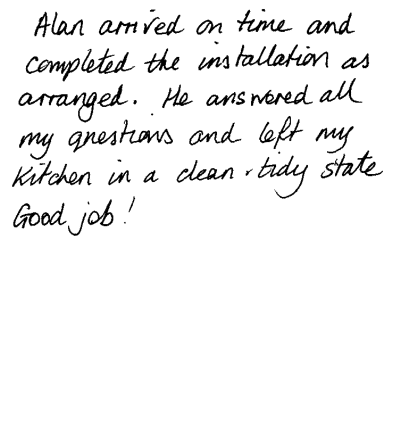 Alan arrived on time and
completed the installation as
arranged. He answered all
my questions and left my
kitchen in a clean + tidy state
Good job!